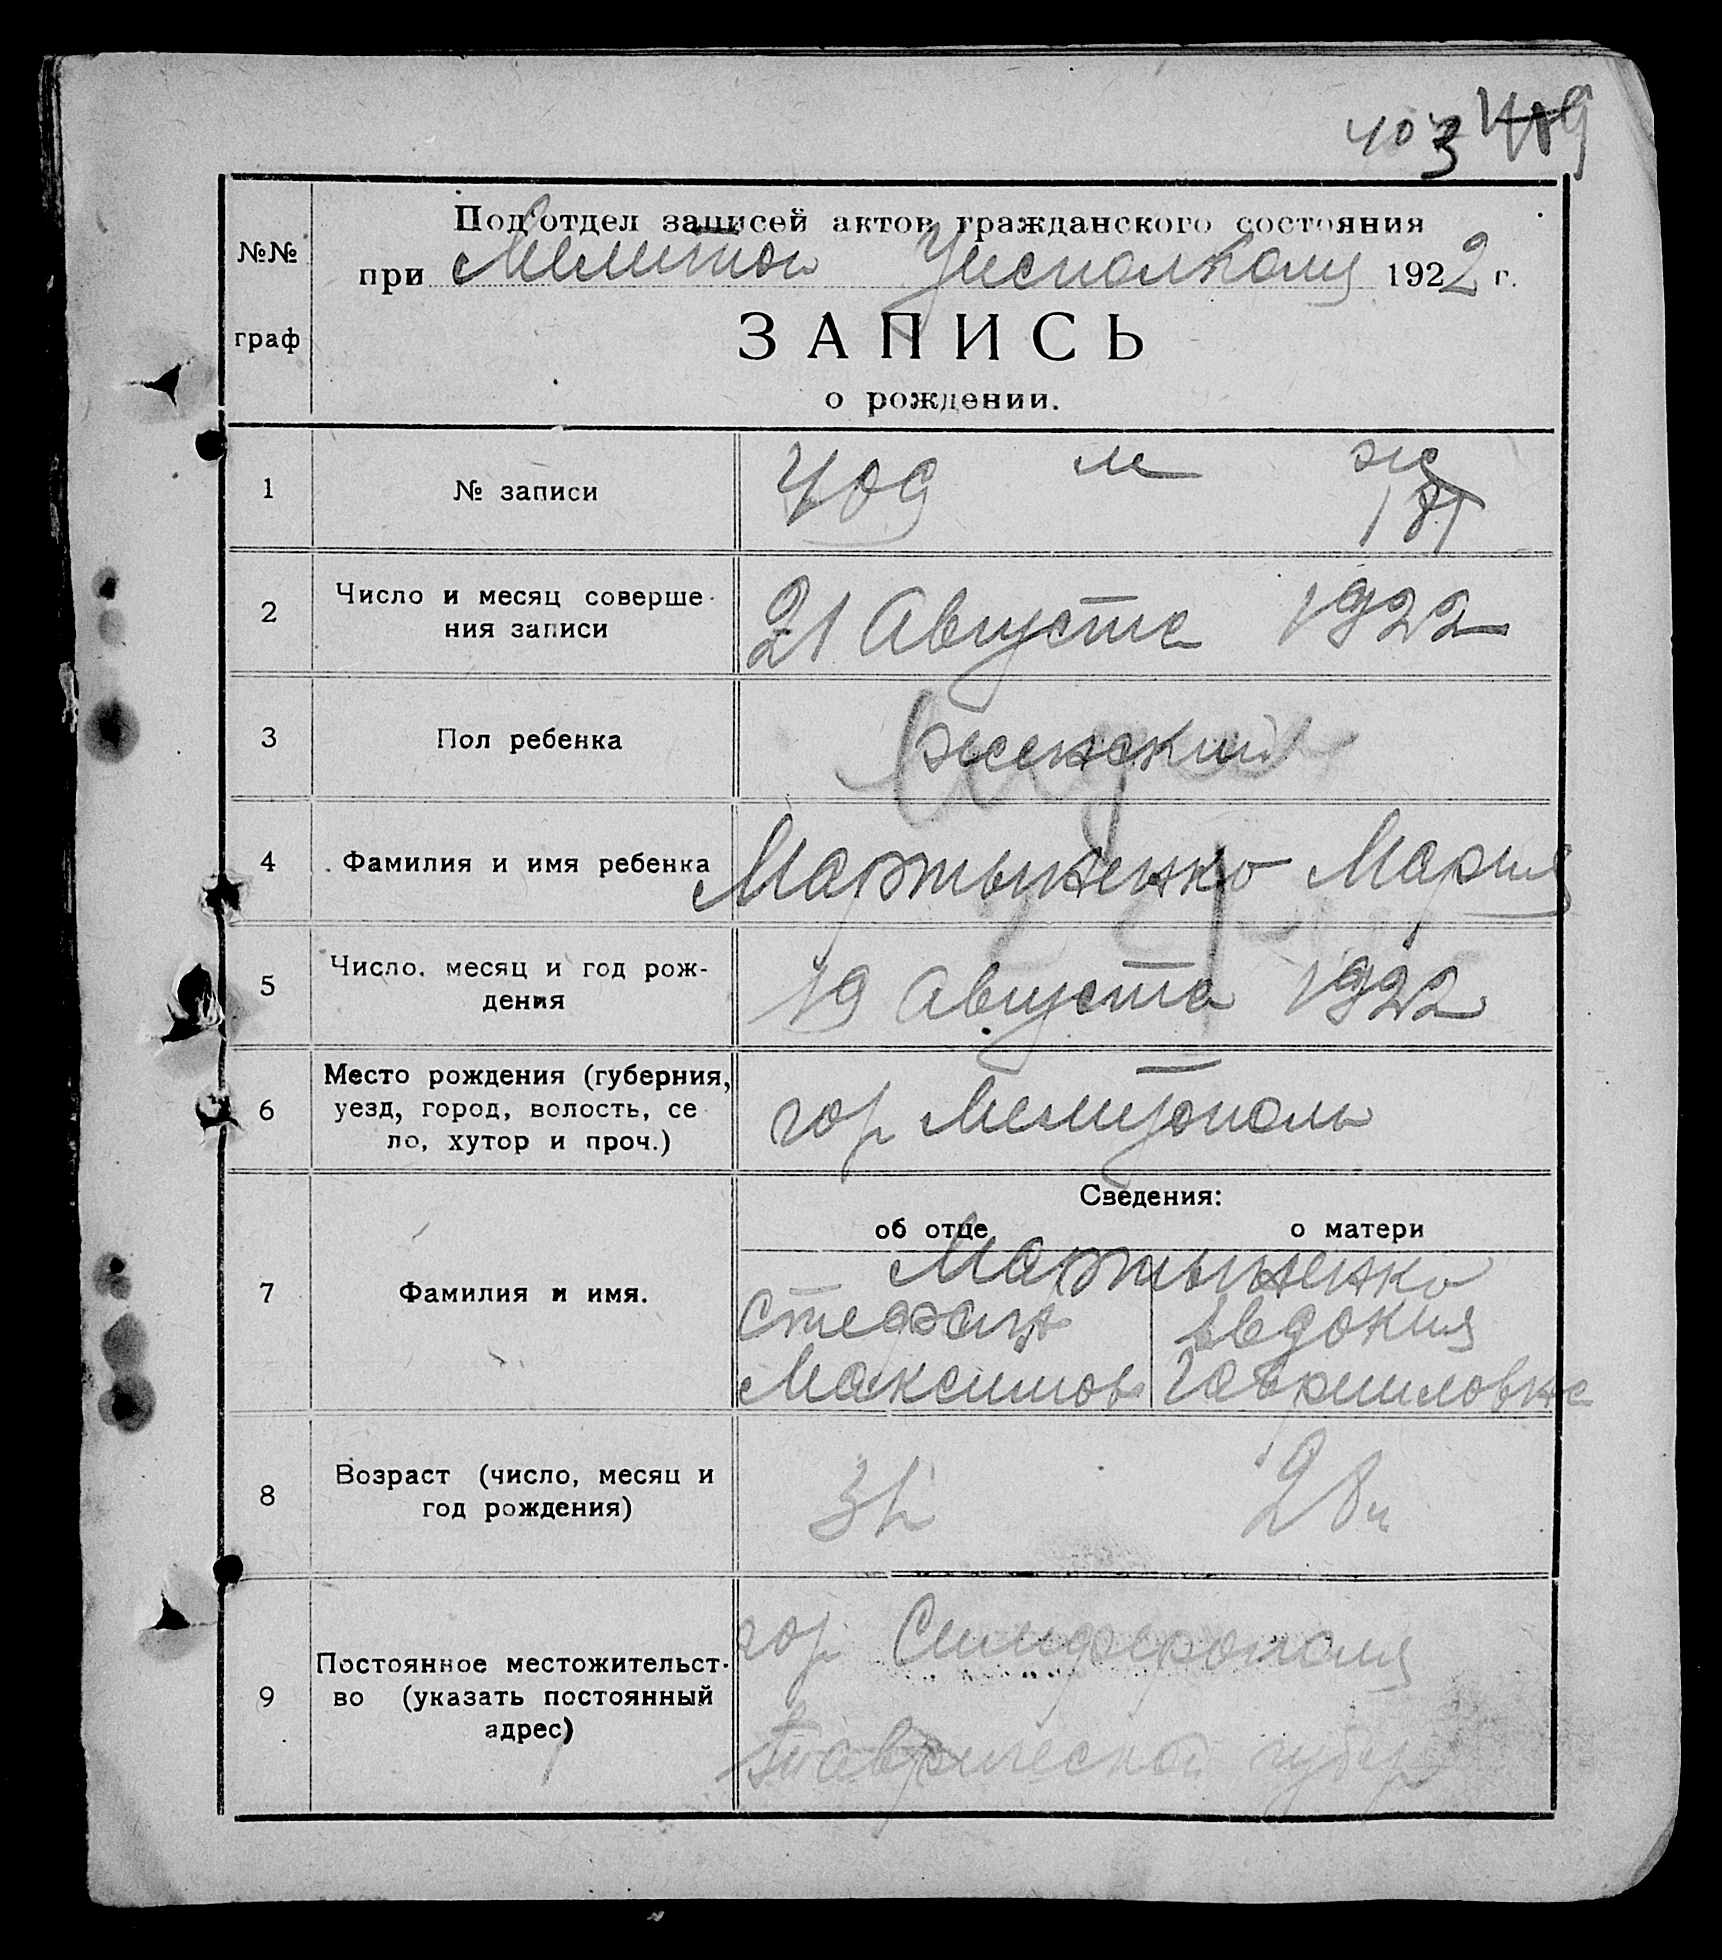 403 409
Под'отдел записей актов гражданского состояния
№№
при Мелитоп Уисполкому 1922 г.
граф
ЗАПИСЬ
о рождении.
1 № записи 409 м ж
181
2 Число и месяц соверше-
ния записи 21 Августа 1922
3 Пол ребенка женский
4 Фамилия и имя ребенка Мартыненко Мария
5 Число, месяц и год рож-
дения 19 Августа 1922
6 Место рождения (губерния,
уезд, город, волость, се
ло, хутор и проч.) гор Мелитополь
Сведения:
об отце о матери
7 Фамилия и имя. Мартыненко
Стефан Евдокия
Максимов Гавриловна
8 Возраст (число, месяц и
год рождения) 31 28
9 Постоянное местожительст-
во (указать постоянный
адрес) гор Симферополя
Таврической губер